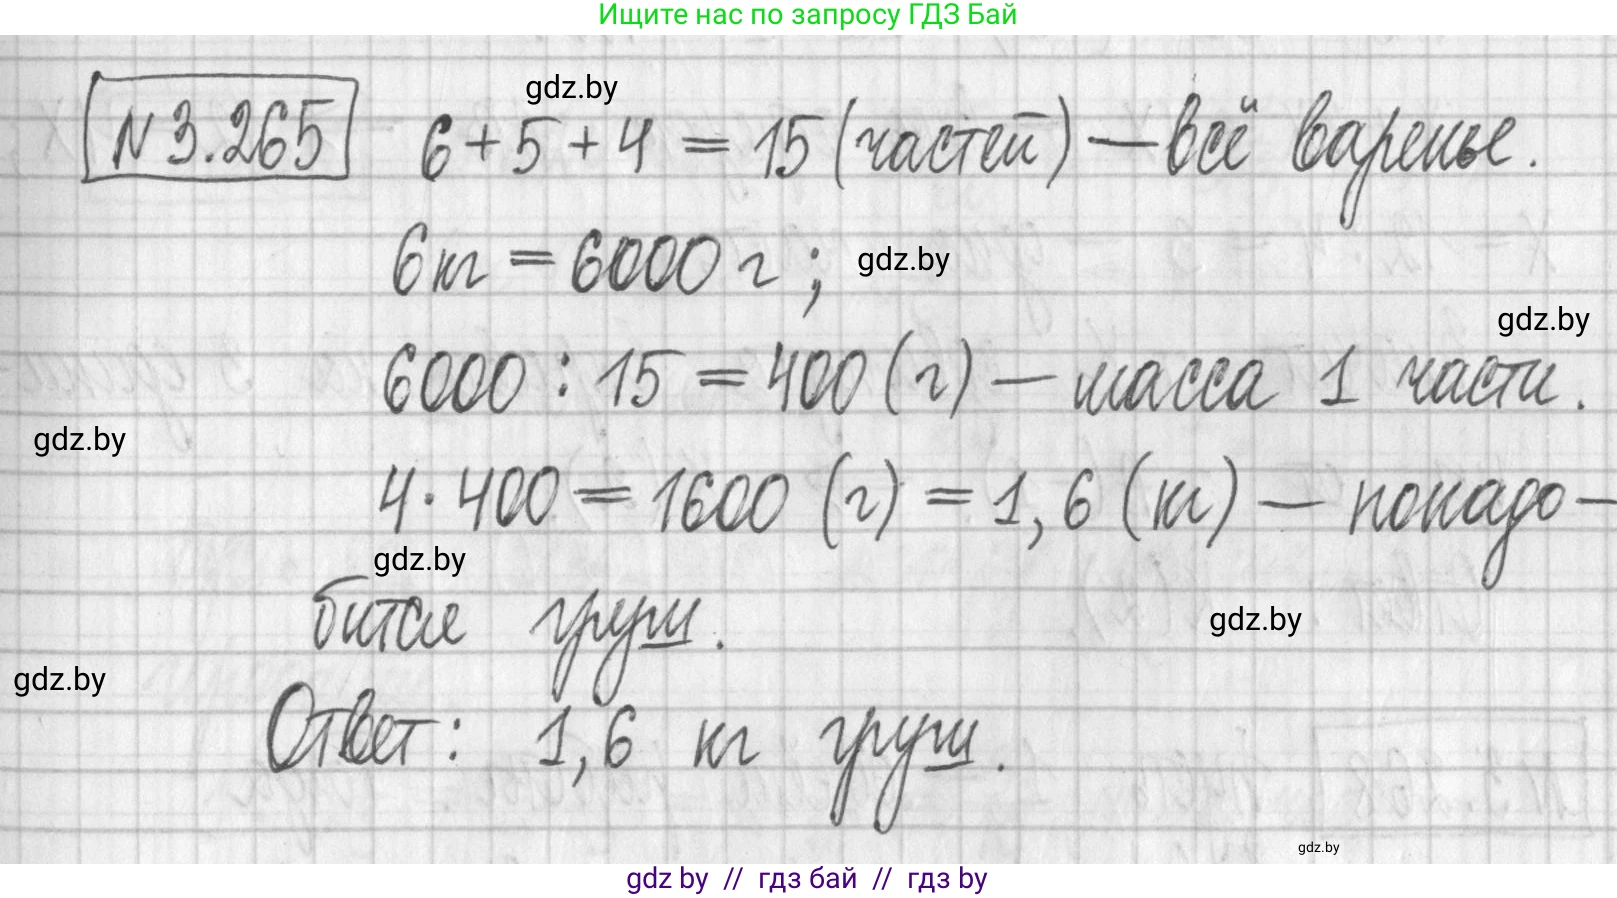 Ищите нас по запросу ГДЗ Бай
gdz.by
N 3.265 6+5+4 = 15 (частей) — всё варенье.
6 кг = 6000 г ; gdz.by
gdz.by
6000 : 15 = 400 (г) — масса 1 части.
gdz.by
4 · 400 = 1600 (г) = 1,6 (кг) — понадо-
gdz.by
бится груш.
gdz.by
gdz.by
Ответ: 1,6 кг груш.
gdz.by
gdz by // гдз бай // гдз by